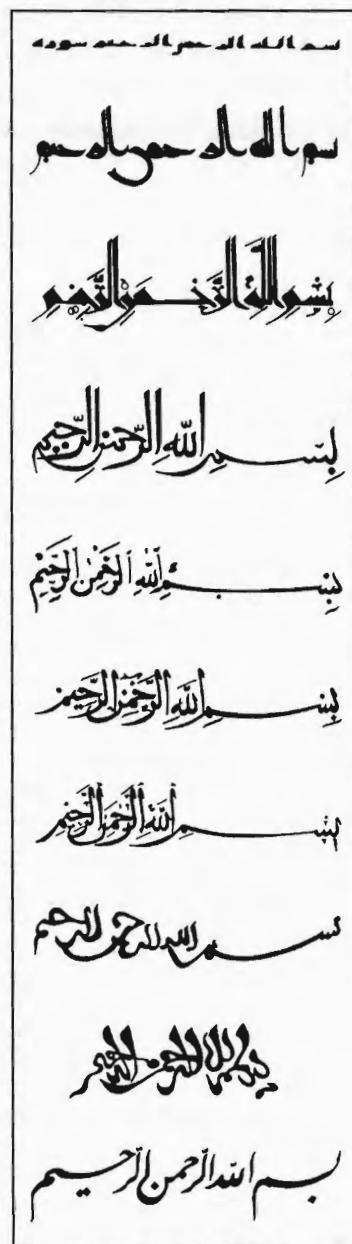 بسم الله الرحمن الرحيم
بسم الله الرحمن الرحيم
بِسْمِ اللَّهِ الرَّحْمَنِ الرَّحِيمِ
بِسْمِ اللَّهِ الرَّحْمَنِ الرَّحِيمِ
بِسْمِ اللَّهِ الرَّحْمَنِ الرَّحِيمِ
بِسْمِ اللَّهِ الرَّحْمَنِ الرَّحِيمِ
بِسْمِ اللَّهِ الرَّحْمَنِ الرَّحِيمِ
بسم الله الرحمن الرحيم
بسم الله الرحمن الرحيم
بسم الله الرّحمن الرّحيم